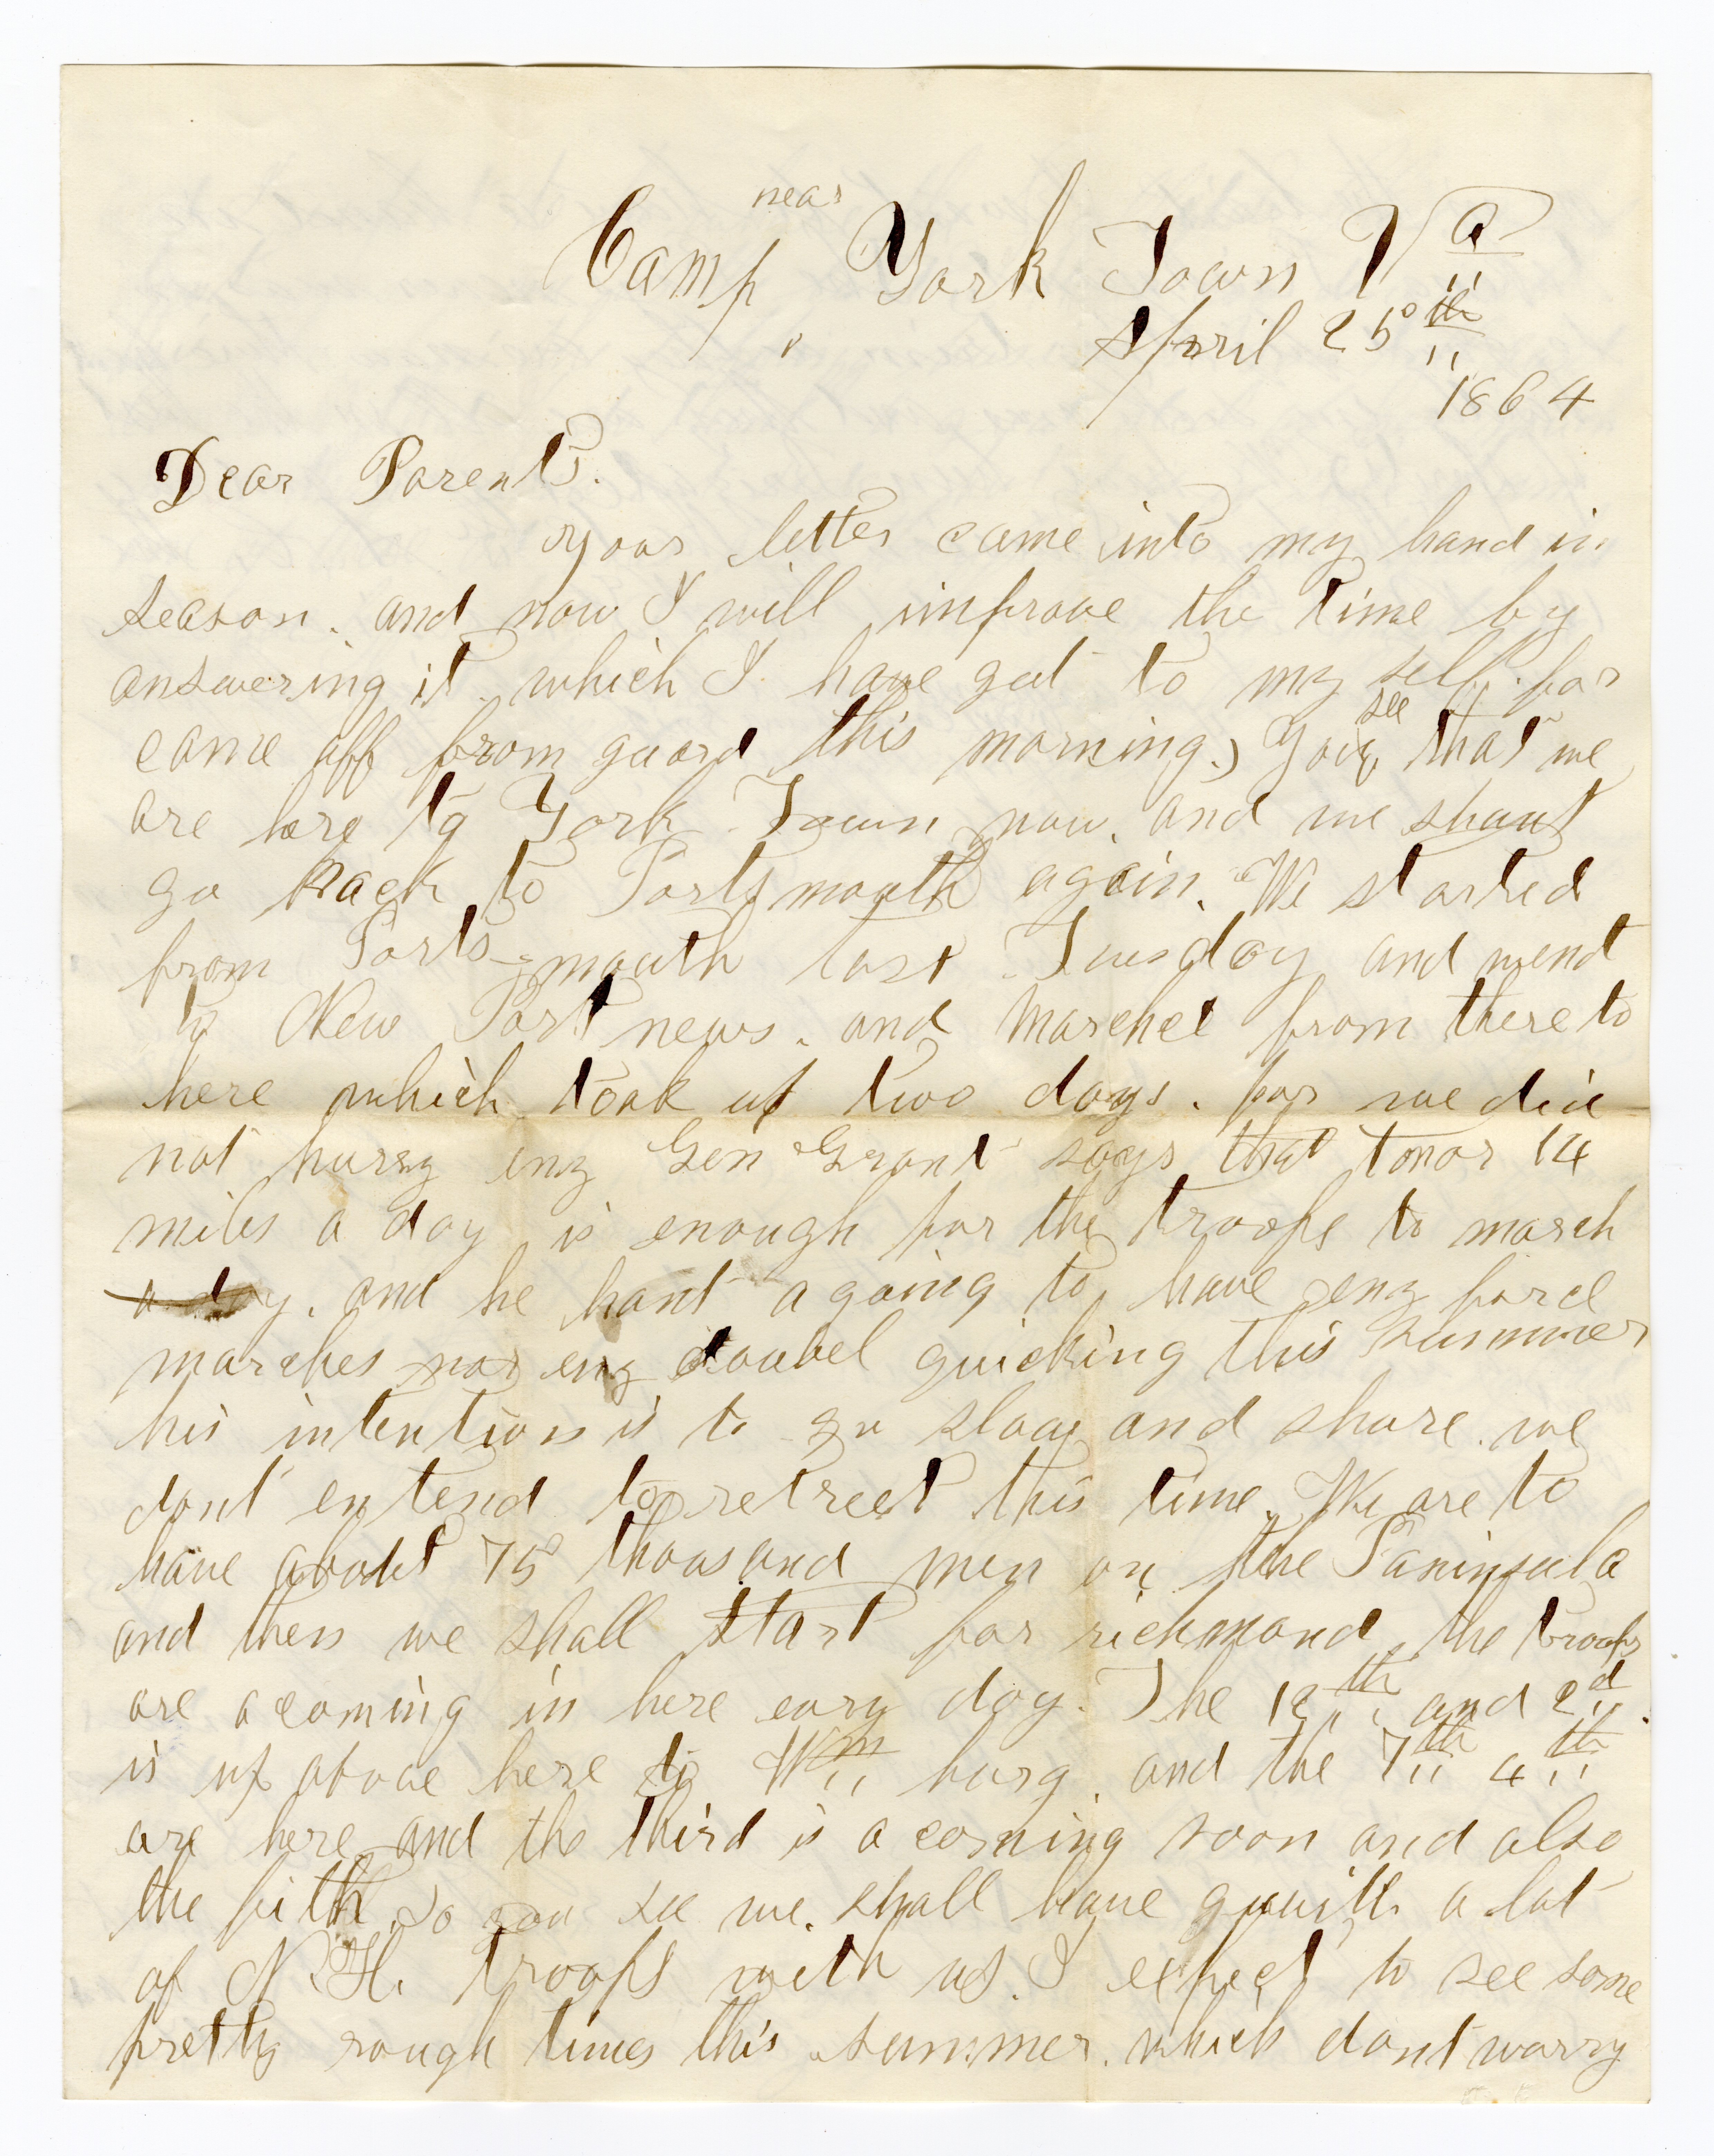 near
Camp, York Town Va
April 25th
1864
Dear Parents.
your letter came into my hand in
season. and now I will improve the time by
answering it. which I have got to my self. for
see
came off from guard this morning.) You, that we
are here to York Town now. and we shant
go back to Portsmouth again. We started
from Ports-mouth last Tuesday and wend
to New Port news. and marched from there to
here which took up two days. for we did
not hurry eny Gen Grant says that
14
miles a day is enough for the troops to march
a day. and he hant a going to have eny forcd
marches nor eny doubel quicking this summer
his intention is to go slow and shure. we
dont entend to retreet this time. We are to
have about 75 thousand men on the Paninsula
and then we shall start for richmond, the troops
are a coming in here evry day. The 12th and 2d.
is up above here to Wm burg. and the 7th 4th
are here and the third is a coming soon and also
the fith. So you see we shall have quuith a lot
of N.H. troops with us. I expect to see some
pretty rough times this summer. which dont worry